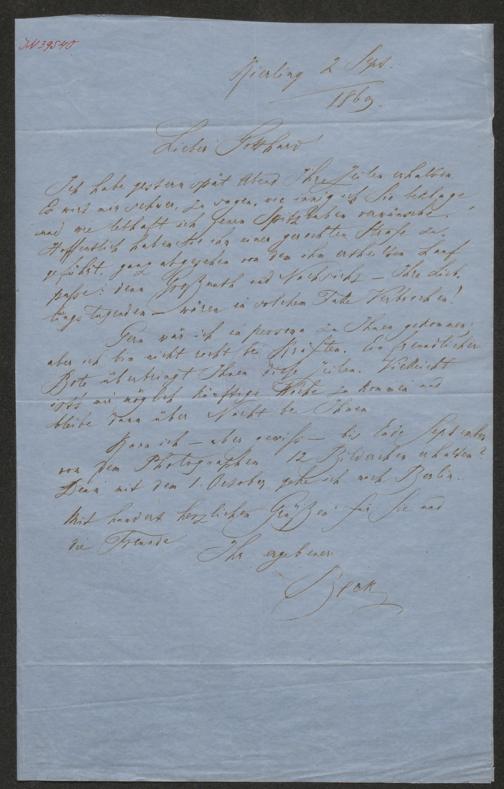 IN 39540
Kierling 2 Sept.
1869.
Lieber Gotthard!
Ich habe gestern spät Abend Ihre Zeilen erhalten
Es wird mir schwer, zu sagen, wie innig ich Sie beklage,
und wie lebhaft ich Herrn Spitzbuben verwünsche.
Hoffentlich haben Sie ihn einer gerechten Strafe zu-
geführt, ganz abgesehen von dem ihm ertheilten Lauf-
passe; denn Großmuth und Nachsicht – Ihre Lieb-
lings Tugenden – wären in solchem Falle Verbrechen!
Gern wär ich in persona zu Ihnen gekommen,
aber ich bin nicht recht bei Kräften. Ein freundlicher
Bote überbringt Ihnen diese Zeilen. Vielleicht
ists mir möglich künftige Woche zu kommen und
bleibe dann über Nacht bei Ihnen
Kann ich – aber gewiß – bis Ende September
von dem Photographen 12 Bilderchen erhalten?
Denn mit dem 1. October gehe ich nach Berlin.
Mit hundert herzlichen Grüßen für Sie und
die Freunde
Ihr ergebener
Beck